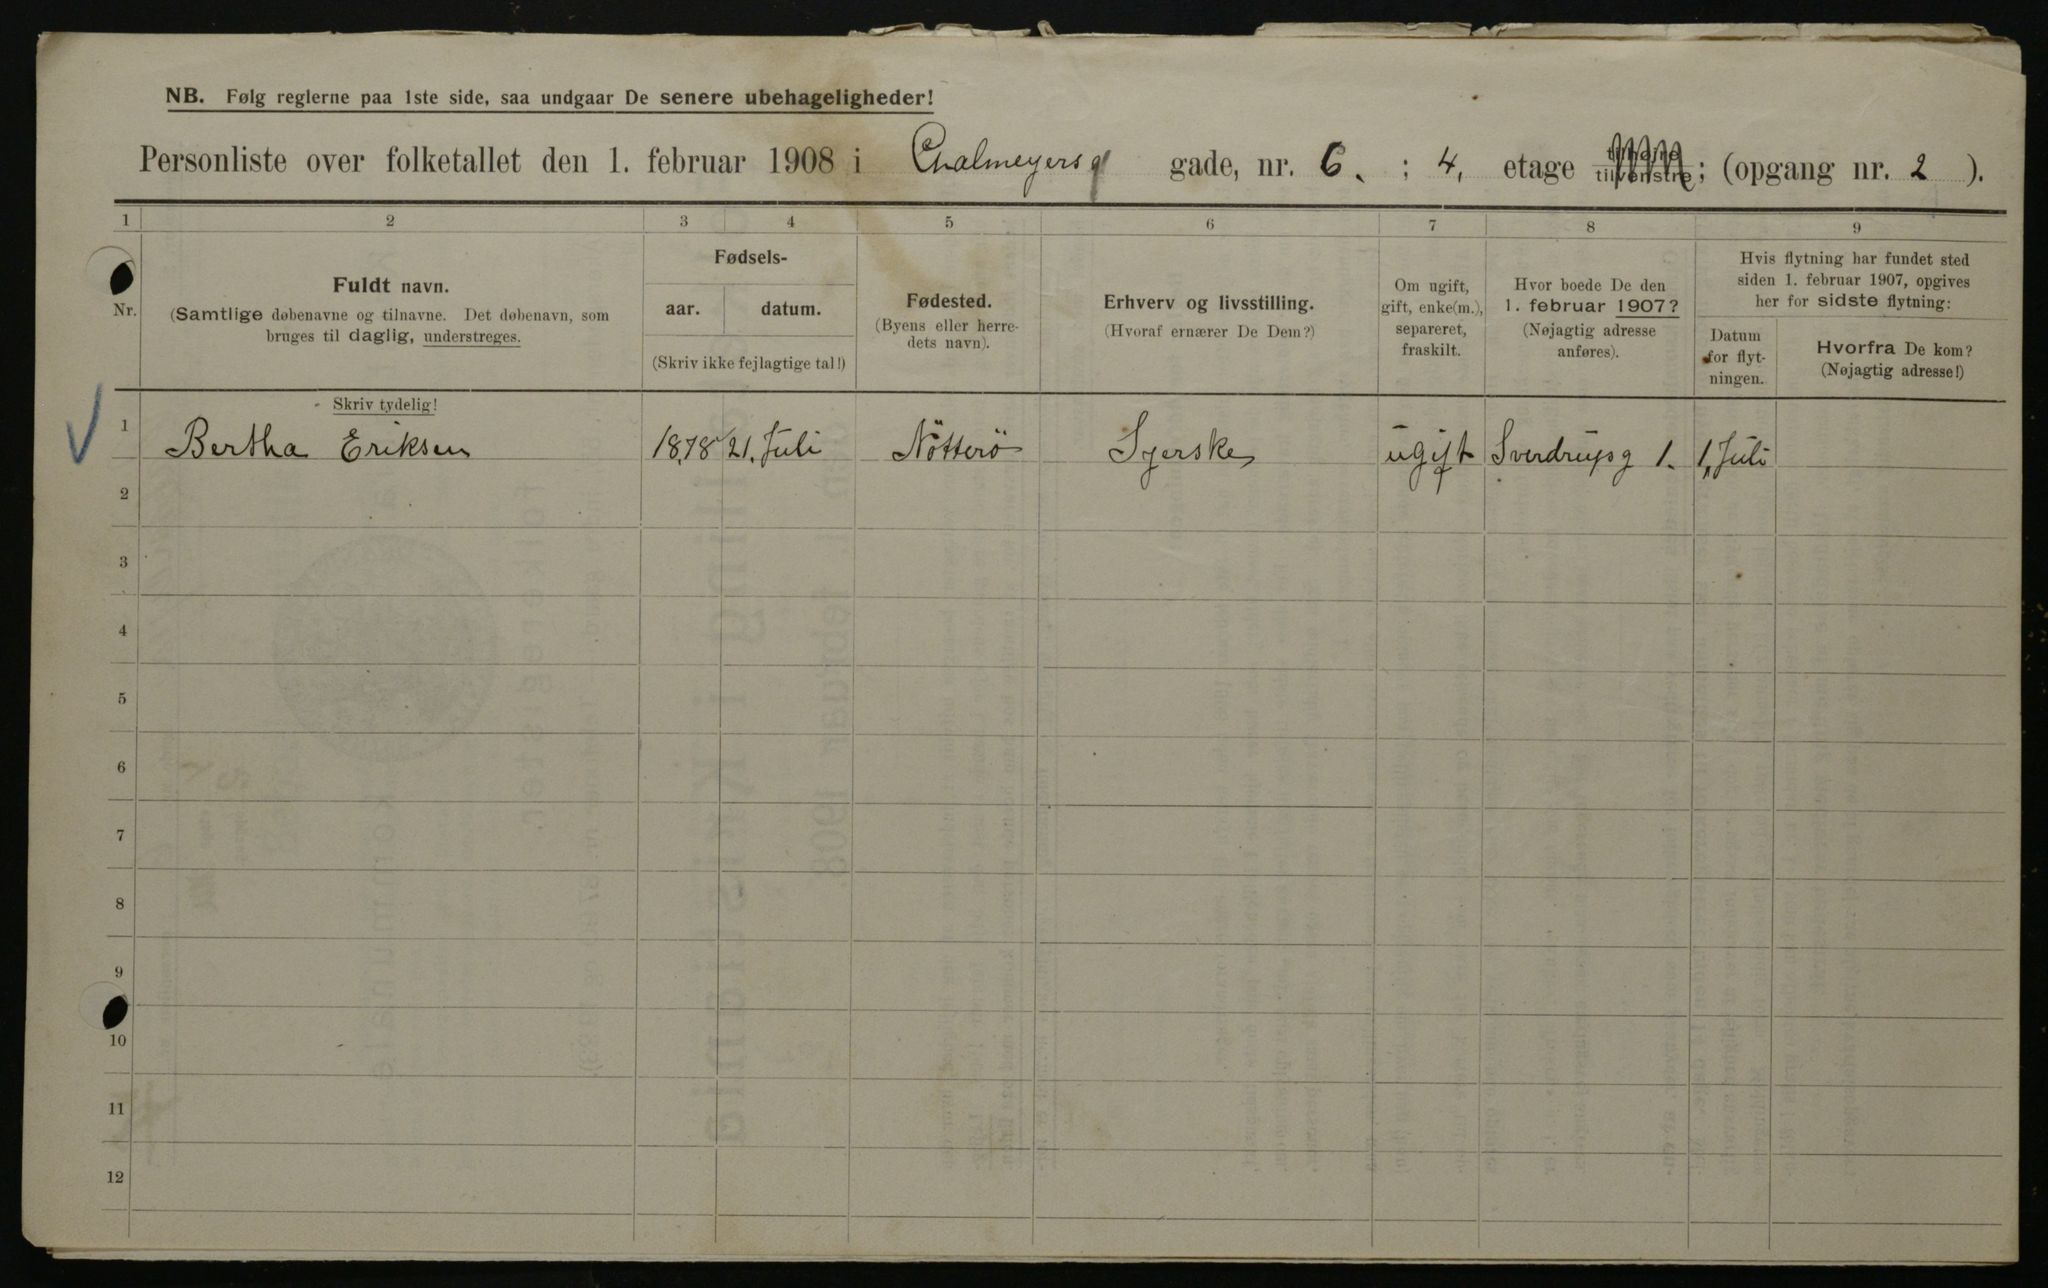 NB. Følg reglerne paa 1ste side, saa undgaar De senere ubehageligheder!
Personliste over folketallet den 1. februar 1908 i Thalmeyersg gade, nr. 6. ; 4. etage tilhøire tilvenstre ; (opgang nr. 2 ).
1 2 3 4 5 6 7 8 9
Nr.
Fuldt navn.
(Samtlige døbenavne og tilnavne. Det døbenavn, som
bruges til daglig, understreges.
Fødsels-
aar. datum.
(Skriv ikke fejlagtige tal!)
Fødested.
(Byens eller herre-
dets navn).
Erhverv og livsstilling.
(Hvoraf ernærer De Dem?)
Om ugift,
gift, enke(m.),
separeret,
fraskilt.
Hvor boede De den
1. februar 1907?
(Nøjagtig adresse
anføres).
Hvis flytning har fundet sted
siden 1. februar 1907, opgives
her for sidste flytning:
Datum
for flyt-
ningen.
Hvorfra De kom?
(Nøjagtig adresse!)
Skriv tydelig!
1 Bertha Eriksen 1878 21. Juli Nötterö Syerske ugift Sverdrupsg 1. 1. Juli
2
3
4
5
6
7
8
9
10
11
12